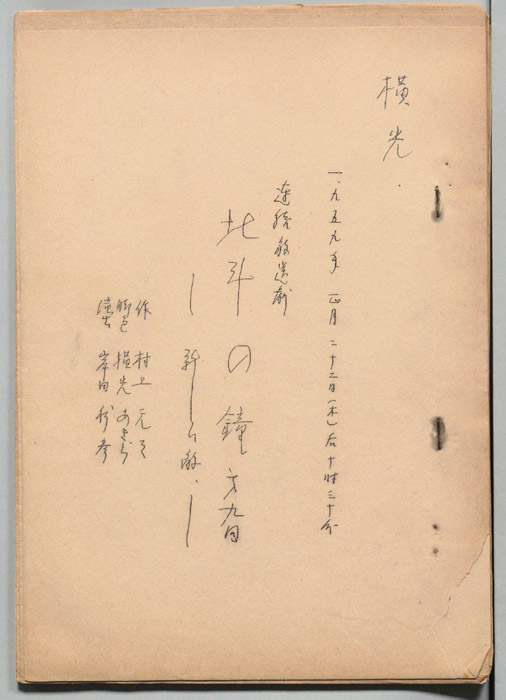 横光
一九五九年 一月二十二日(木)后十時三十分
連続放送劇
北斗の鐘 第九回
― 新しい敵 ―
作 村上元三
脚色 横光あきら
演出 岸田利彦